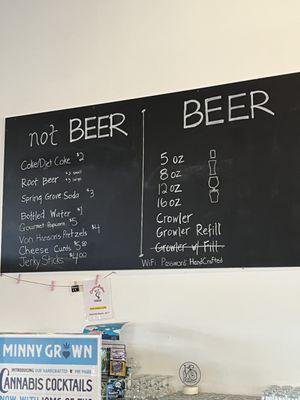 not BEER
Coke/Diet Coke $2
Root Beer $2 small
$3 large
Spring Grove Soda $3
Bottled Water $1
Gourmet Popcorn $5
Van Hansons Pretzels $4
Cheese Curds $5.50
Jerky Sticks $4.00
BEER
5 oz
8 oz
12 oz
16 oz
Crowler
Growler Refill
Growler w/ Fill
WiFi Password: HandCrafted
MINNY GROWN
INTRODUCING OUR HANDCRAFTED
CANNABIS COCKTAILS
NOW WITH 10MG OF THC